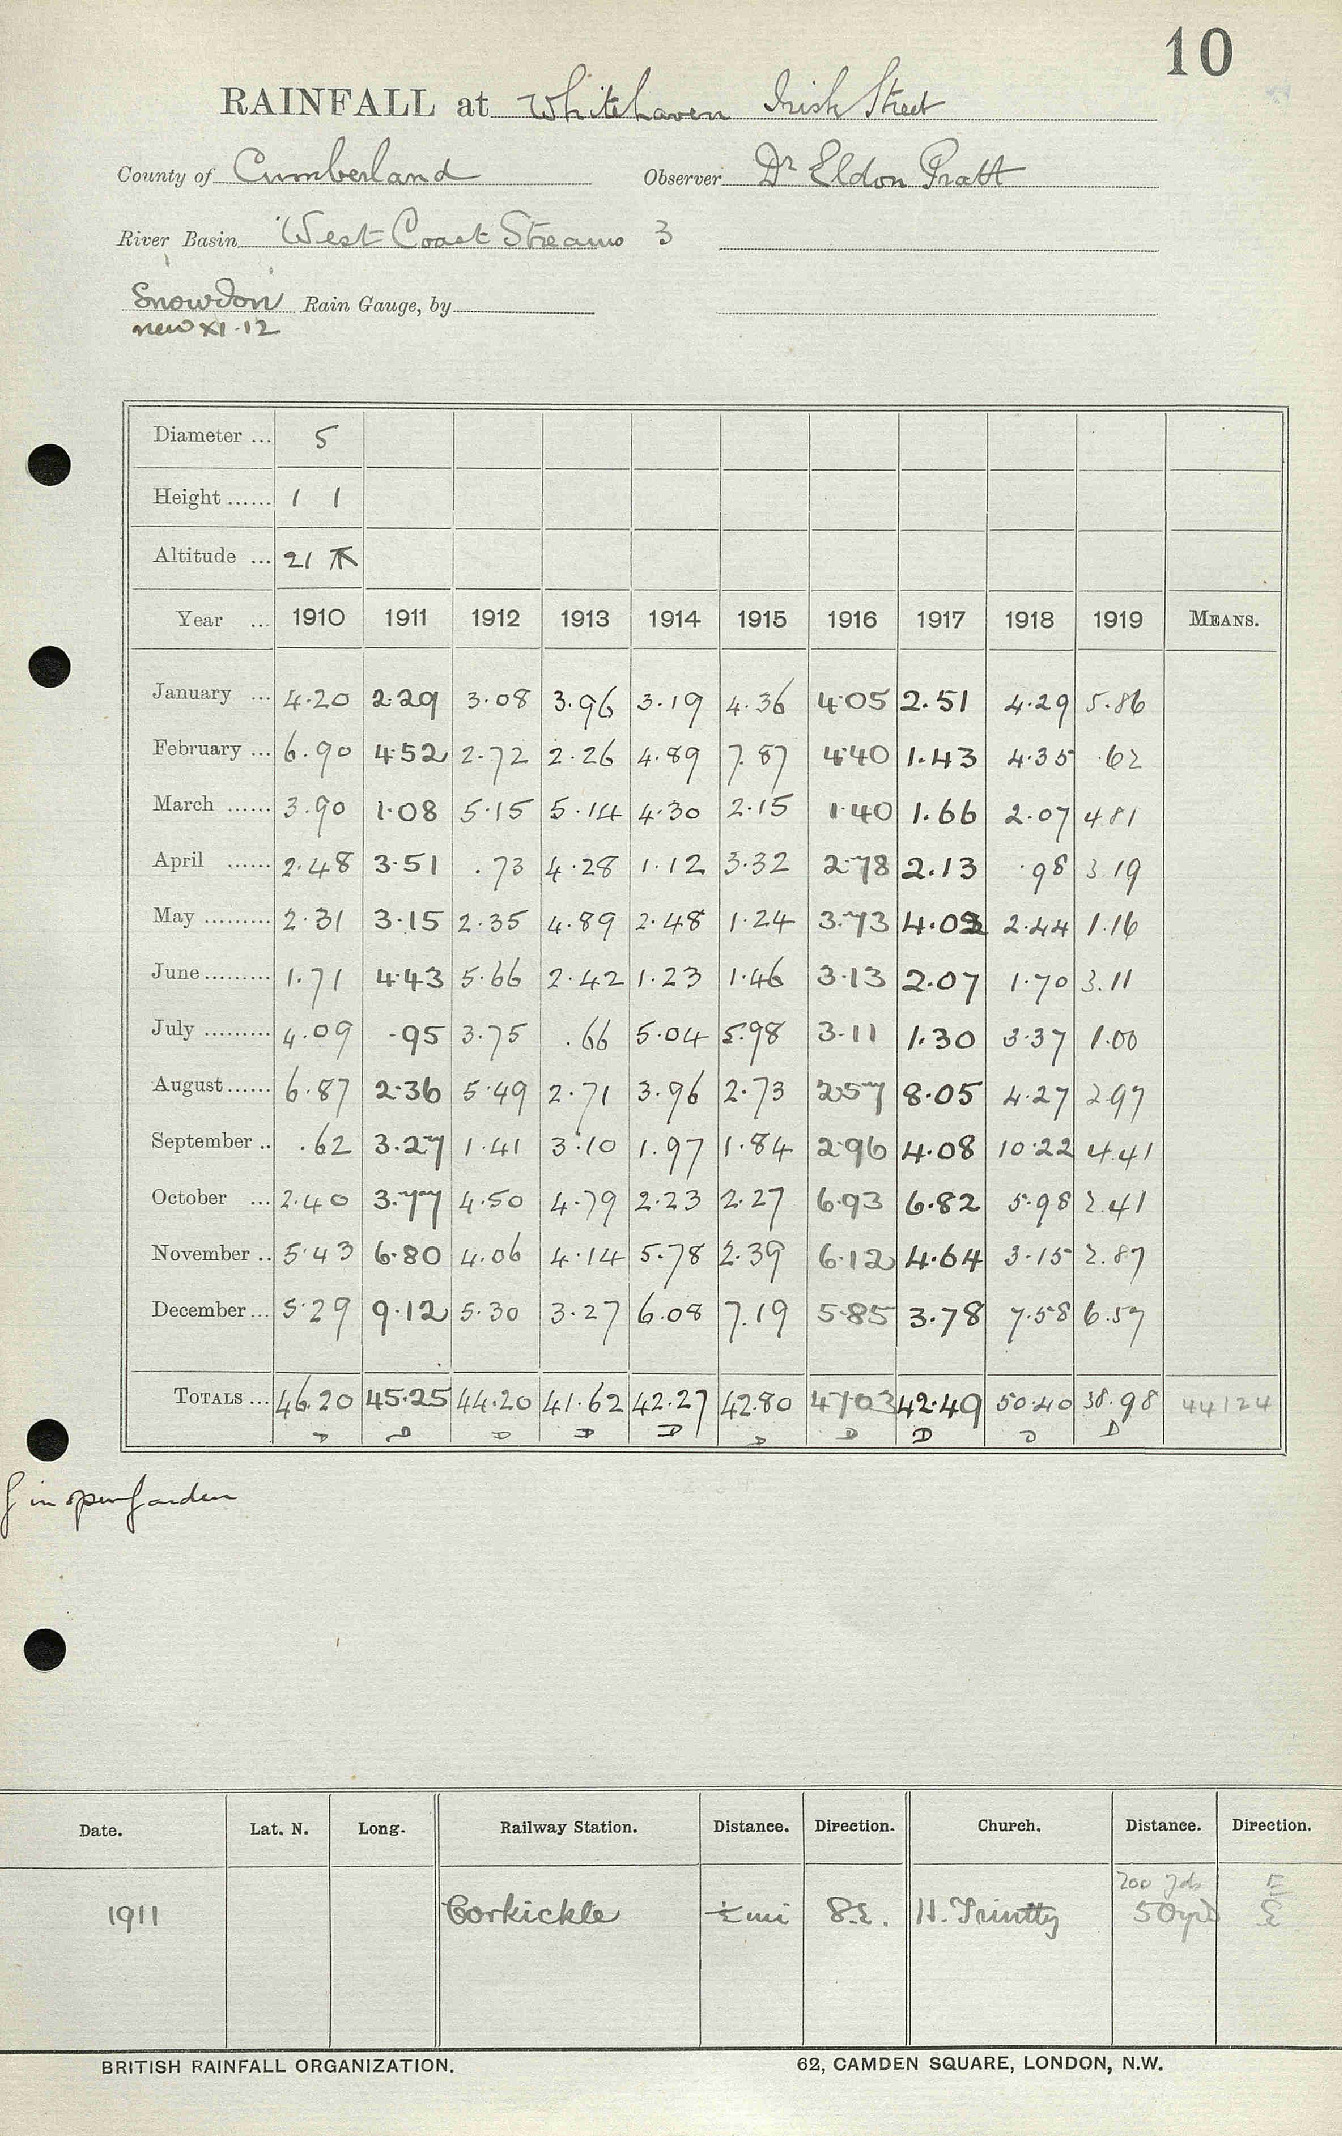 10
RAINFALL at Whitehaven Irish Street
County of Cumberland Observer Dr Eldon Pratt
River Basin West Coast Streams 3
Snowdon Rain Gauge, by
new XI.12
Diameter ... 5
Height ...... 1 1
Altitude ... 21
Year ... 1910 1911 1912 1913 1914 1915 1916 1917 1918 1919 MEANS.
January ... 4.20 2.29 3.08 3.96 3.19 4.36 4.05 2.51 4.29 5.86
February ... 6.90 4.52 2.72 2.26 4.89 7.87 4.40 1.43 4.35 .62
March ...... 3.90 1.08 5.15 5.14 4.30 2.15 1.40 1.66 2.07 4.81
April ...... 2.48 3.51 .73 4.28 1.12 3.32 2.78 2.13 .98 3.19
May ......... 2.31 3.15 2.35 4.89 2.48 1.24 3.73 4.02 2.44 1.16
June ......... 1.71 4.43 5.66 2.42 1.23 1.46 3.13 2.07 1.70 3.11
July ......... 4.09 .95 3.75 .66 5.04 5.98 3.11 1.30 3.37 1.00
August ...... 6.87 2.36 5.49 2.71 3.96 2.73 2.57 8.05 4.27 2.97
September .. .62 3.27 1.41 3.10 1.97 1.84 2.96 4.08 10.22 4.41
October ... 2.40 3.77 4.50 4.79 2.23 2.27 6.93 6.82 5.98 2.41
November .. 5.43 6.80 4.06 4.14 5.78 2.39 6.12 4.64 3.15 2.87
December ... 5.29 9.12 5.30 3.27 6.08 7.19 5.85 3.78 7.58 6.57
TOTALS ... 46.20 45.25 44.20 41.62 42.27 42.80 47.03 42.49 50.40 38.98 44124
D D D D D D D D D D
G in open garden
Date. Lat. N. Long. Railway Station. Distance. Direction. Church. Distance. Direction.
200 yds E
1911 Corkickle ½ mi S.E. H. Trinity 50 yds E
BRITISH RAINFALL ORGANIZATION. 62, CAMDEN SQUARE, LONDON, N.W.